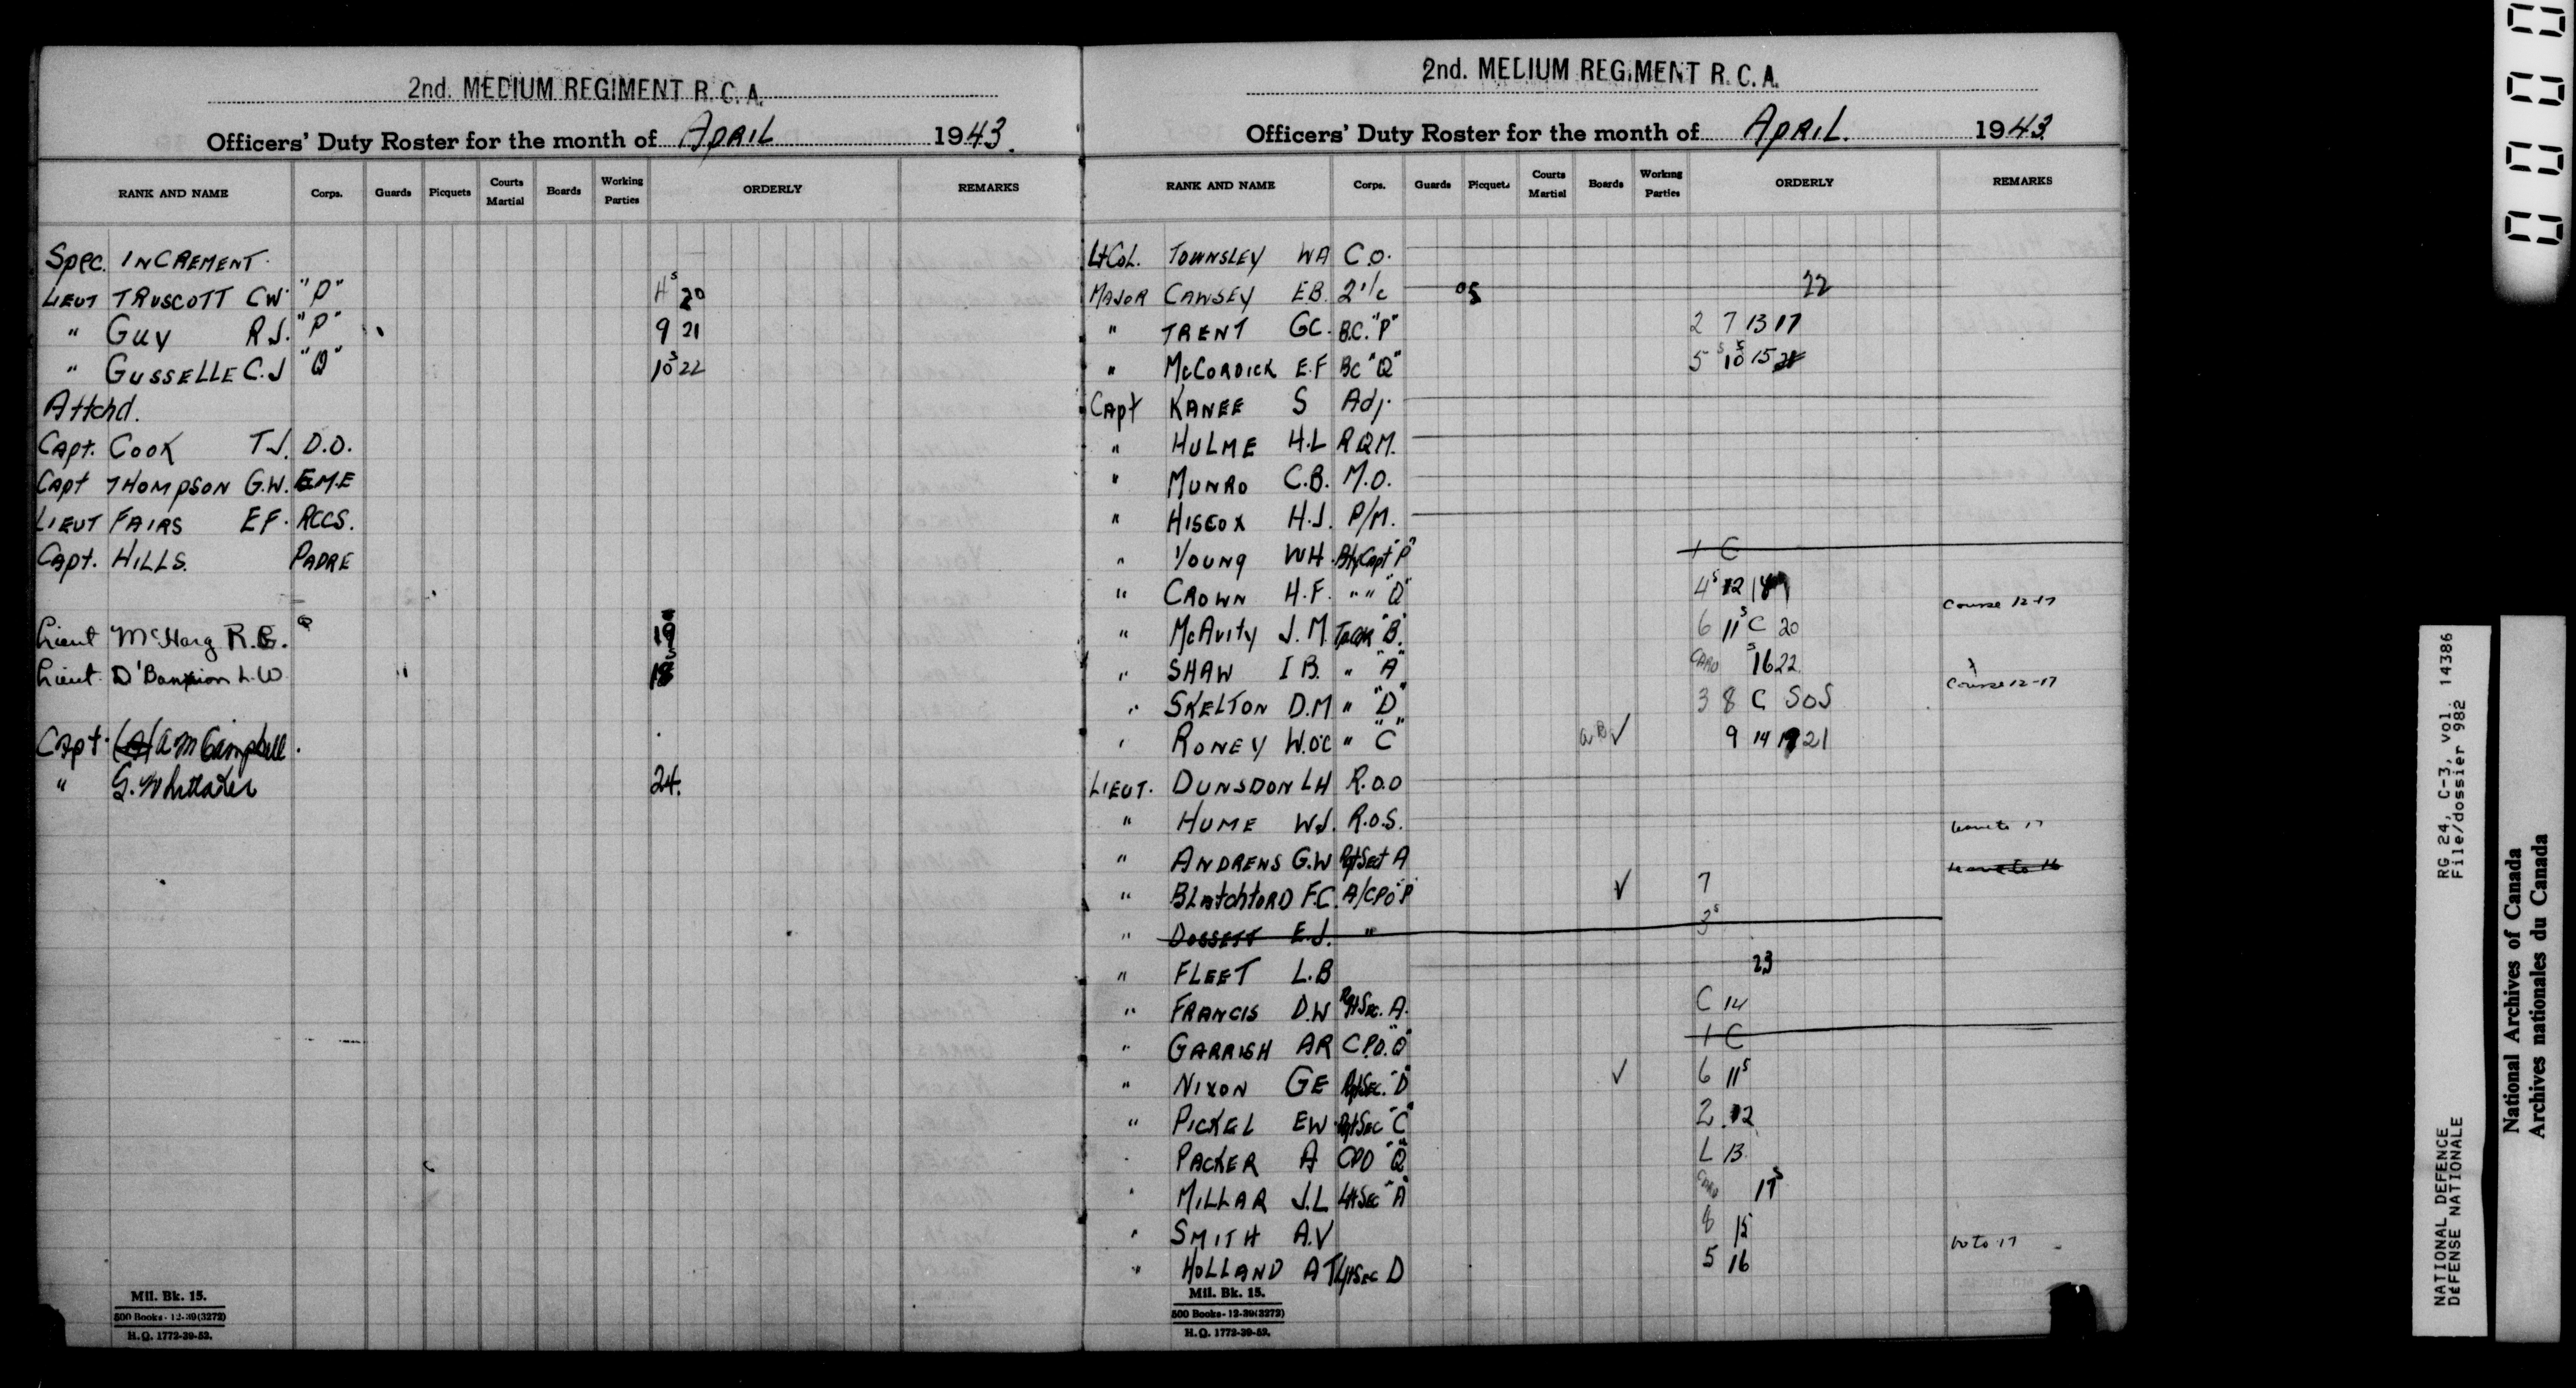 2nd. MEDIUM REGIMENT R. C. A.
Officers' Duty Roster for the month of APRIL 1943.
RANK AND NAME Corps. Guards Picquets Courts Martial Boards Working Parties ORDERLY REMARKS
Spec. INCREMENT.
LIEUT TRUSCOTT CW. "P" 4 s 20
" GUY R.J. "P" 9 21
" GUSSELLE C.J "Q" 10 s 22
Attchd.
Capt. COOK T.J. D.O.
Capt THOMPSON G.W. E.M.E
LIEUT FAIRS E F. RCCS.
Capt. HILLS. PADRE
Lieut McHarg R.G. Q 19
Lieut. L.W. 18
Capt. A M Campbell.
" G. Whittaker 24.
Mil. Bk. 15.
500 Books - 12-39 (3272)
H. Q. 1772-39-52.
2nd. MEDIUM REGIMENT R. C. A.
Officers' Duty Roster for the month of APRIL. 1943
RANK AND NAME Corps. Guards Picquets Courts Martial Boards Working Parties ORDERLY REMARKS
Lt Col. TOWNSLEY WA C.O.
MAJOR CAWSEY E B. 2 i/c 22
" TRENT G C. B.C. "P" 2 7 13 17
" McCORDICK E.F BC "Q" 5 10 s 15
Capt KANEE S Adj.
" HULME H.L R Q M.
" MUNRO C.B. M.O.
" HISCOX H.J. P/M.
" YOUNG WH. Bty Capt "P" 1 C
" CROWN H.F. " " "Q" 4 s 12
" McAvity J. M. "B" 6 11 s C 20 Course 12-17
" SHAW I B. " "A" CARO s 16 22
" SKELTON D.M " "D" 3 8 C SOS Course 12-17
" RONEY W.O'C " "C" ✓ 9 14 21
LIEUT. DUNSDON LH R.O.O
" HUME W.J. R.O.S. leave to 17
" ANDRENS G.W Rgt Sect A leave to 16
" BLatchfORD F.C. A/CPO "P" ✓ 7
" DOSSETT E.J. " 3 s
" FLEET L.B 23
" FRANCIS D.W Rgt Sec. A. C 14
" GARRISH AR C.P.O. "Q" 1 C
" NIXON GE Rgt Sec. "D" ✓ 6 11 s
" PICKEL EW. Rgt Sec "C" 2 12
" PACKER A CPO "Q" L 13
" MILLAR J.L Lt Sec "A" CARO 17 s
" SMITH A.V 8 15
" HOLLAND A T Lt Sec D 5 16 to 17
Mil. Bk. 15.
500 Books - 12-39 (3272)
H. Q. 1772-39-52.
RG 24, C-3, vol. 14386
File/dossier 982
NATIONAL DEFENCE
DÉFENSE NATIONALE
National Archives of Canada
Archives nationales du Canada